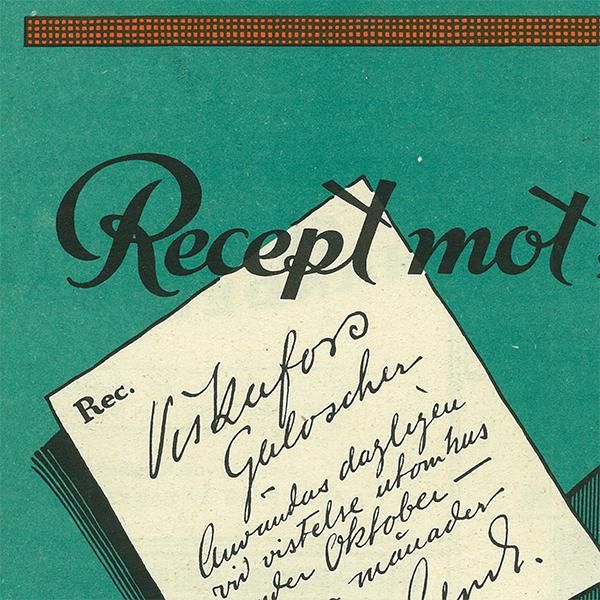 Recept mot
Rec.
Viskafors
Galoscher
Användas dagligen
vid vistelse utomhus
Oktober —
månader